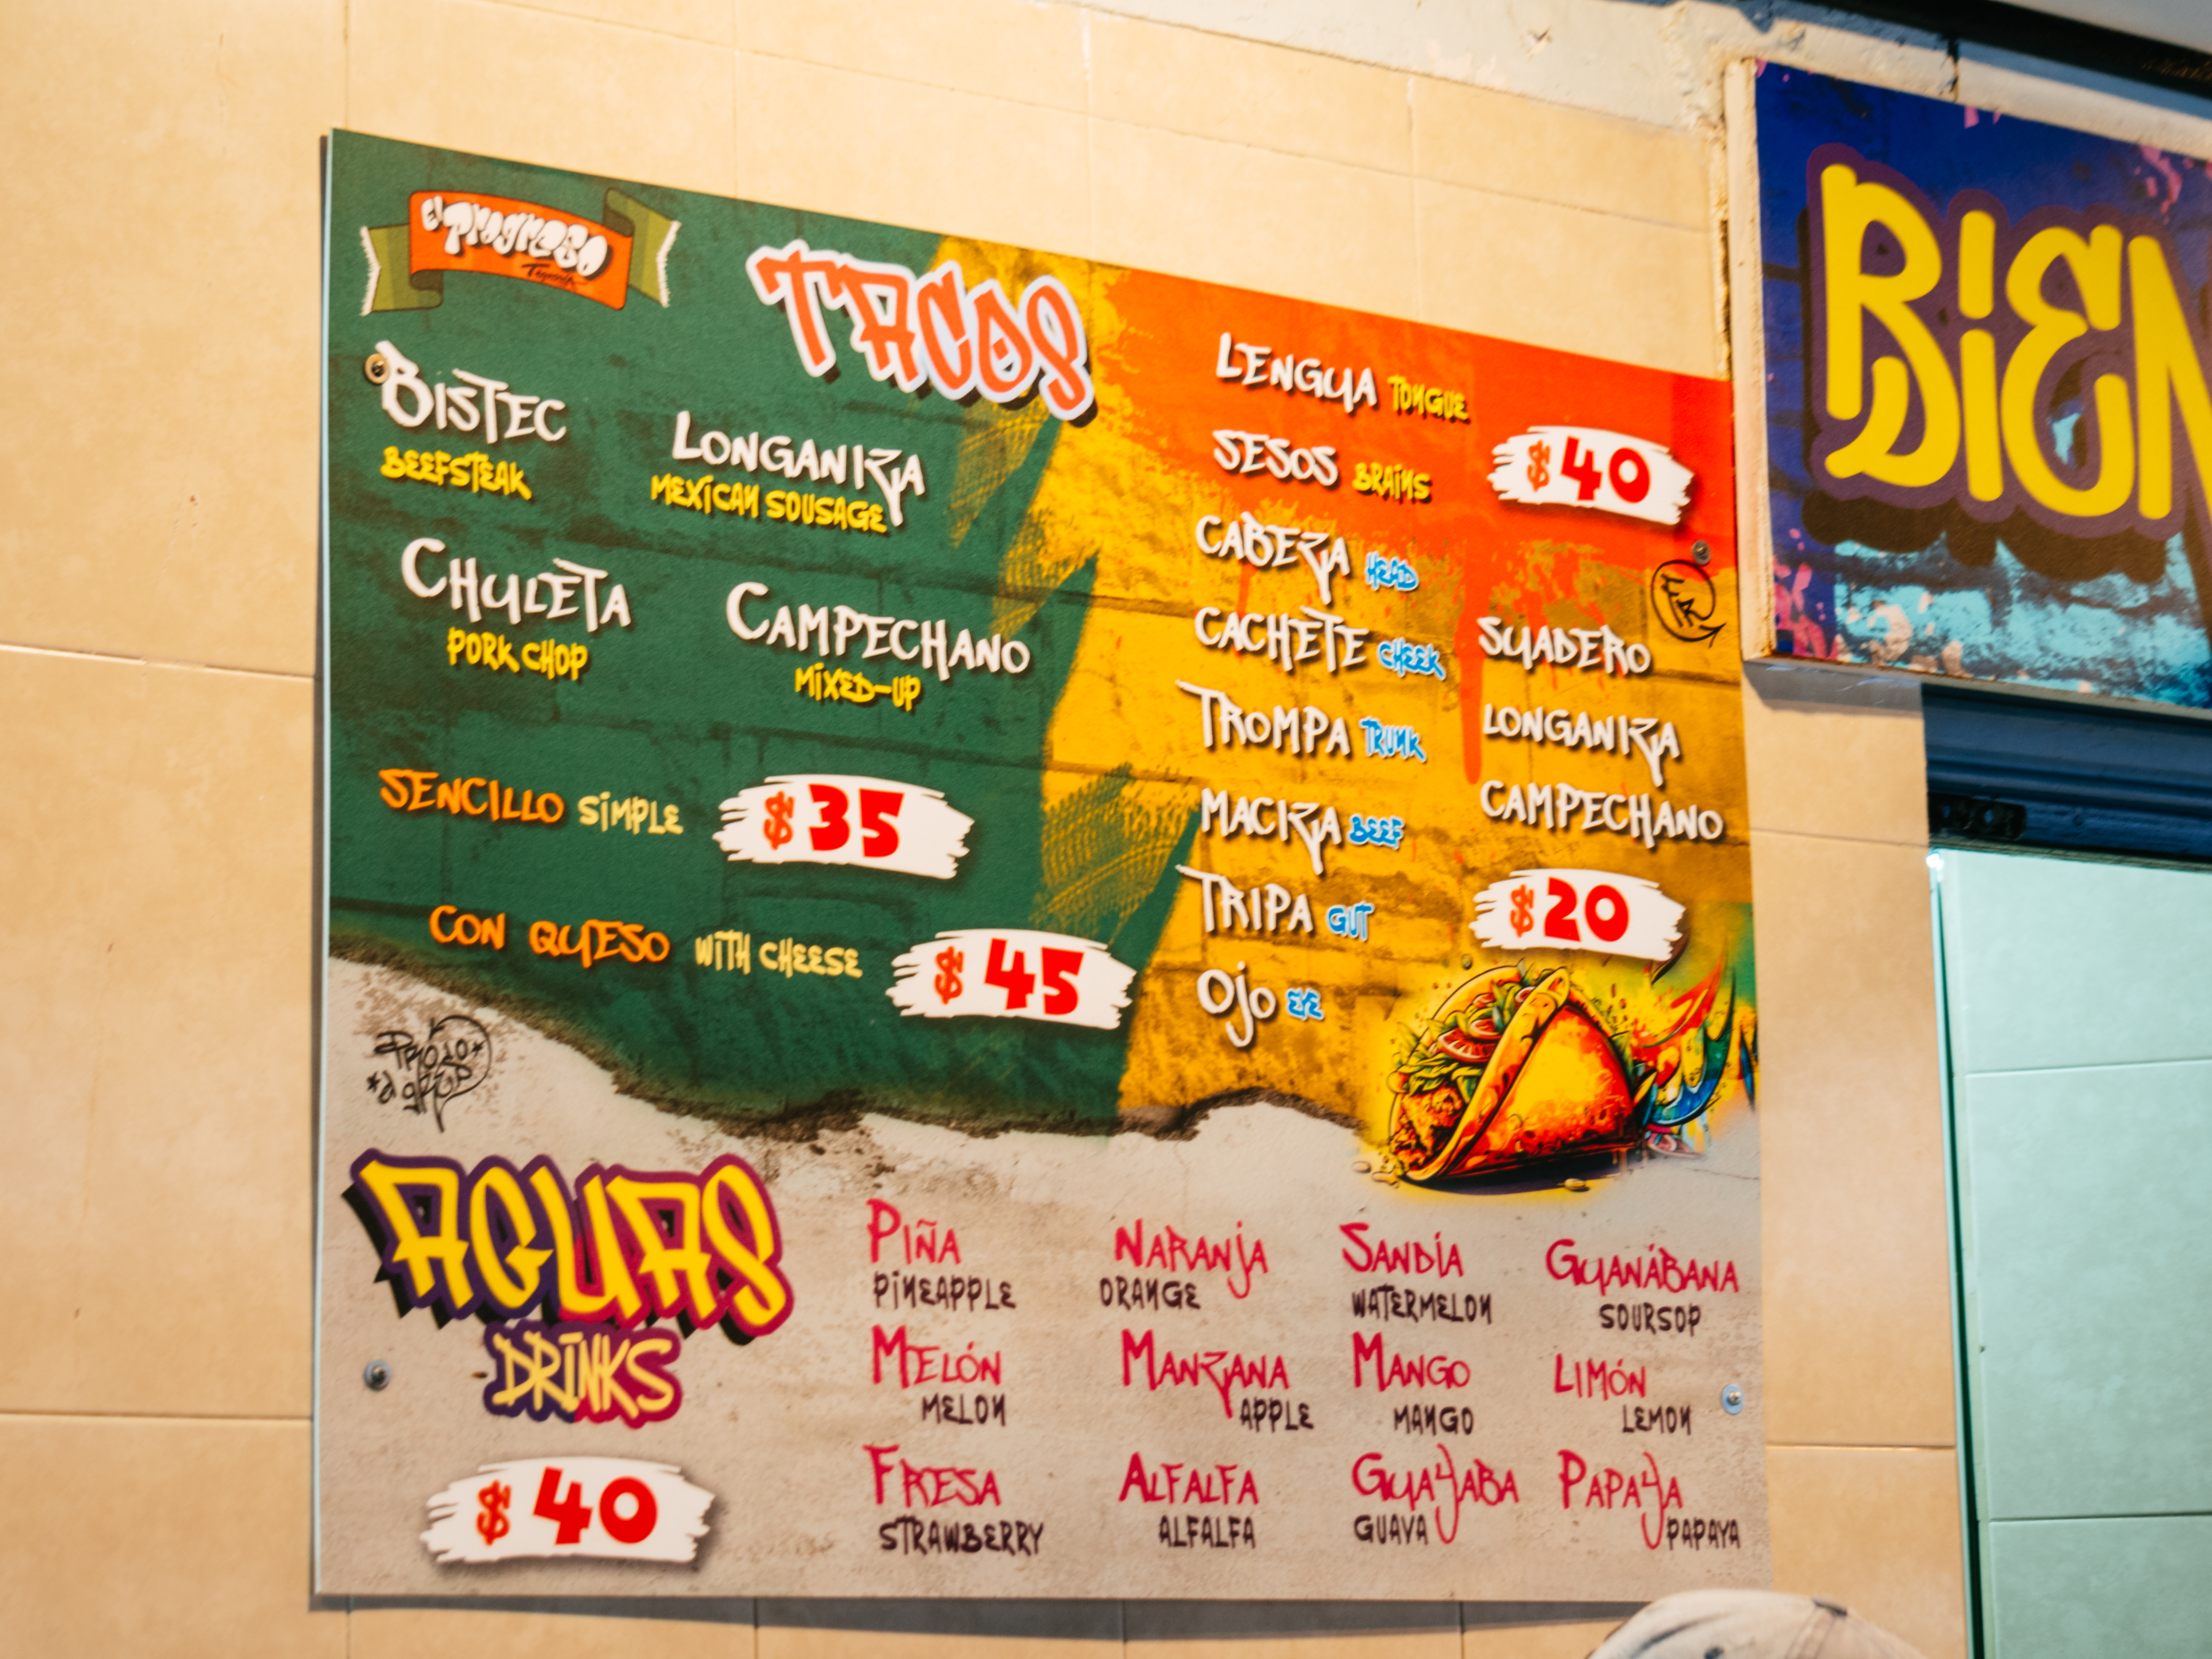 El Progreso
Taquería
TACOS
BISTEC
BEEFSTEAK
LONGANIZA
MEXICAN SOUSAGE
CHULETA
PORK CHOP
CAMPECHANO
MIXED-UP
SENCILLO SIMPLE $35
CON QUESO WITH CHEESE $45
LENGUA TONGUE
SESOS BRAINS
$40
CABEZA HEAD
CACHETE CHEEK
TROMPA TRUNK
MACIZA BEEF
TRIPA GUT
OJO EYE
SUADERO
LONGANIZA
CAMPECHANO
$20
AGUAS
DRINKS
$40
PIÑA
PINEAPPLE
NARANJA
ORANGE
SANDÍA
WATERMELON
GUANÁBANA
SOURSOP
MELÓN
MELON
MANZANA
APPLE
MANGO
MANGO
LIMÓN
LEMON
FRESA
STRAWBERRY
ALFALFA
ALFALFA
GUAYABA
GUAVA
PAPAYA
PAPAYA
BIEN